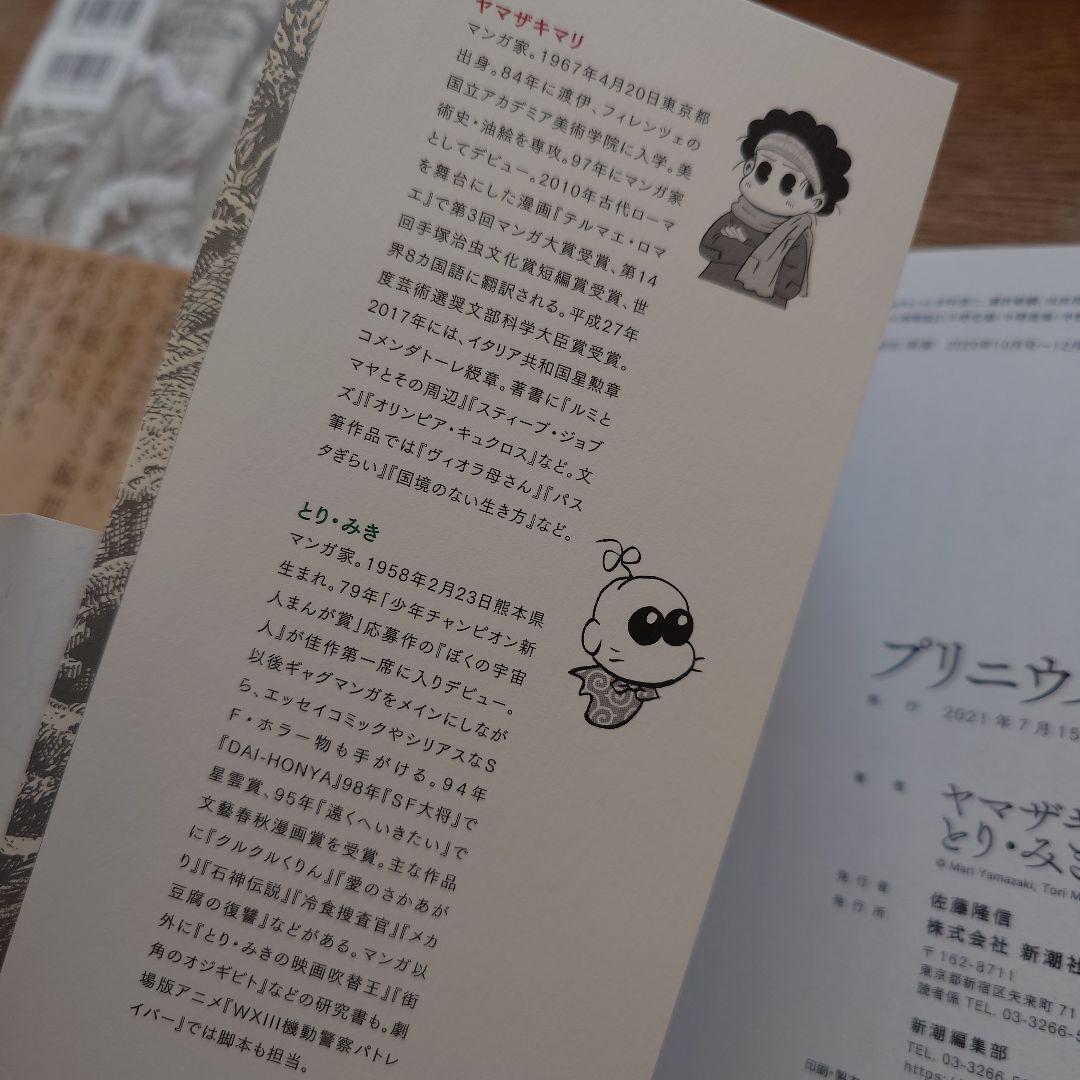 ヤマザキマリ
マンガ家。1967年4月20日東京都
出身。84年に渡伊、フィレンツェの
国立アカデミア美術学院に入学。美
術史・油絵を専攻。97年にマンガ家
としてデビュー。2010年古代ローマ
を舞台にした漫画『テルマエ・ロマ
エ』で第3回マンガ大賞受賞、第14
回手塚治虫文化賞短編賞受賞、世
界8カ国語に翻訳される。平成27年
度芸術選奨文部科学大臣賞受賞。
2017年には、イタリア共和国星勲章
コメンダトーレ綬章。著書に『ルミと
マヤとその周辺』『スティーブ・ジョブ
ズ』『オリンピア・キュクロス』など。文
筆作品では『ヴィオラ母さん』『パス
タぎらい』『国境のない生き方』など。
とり・みき
マンガ家。1958年2月23日熊本県
生まれ。79年「少年チャンピオン新
人まんが賞」応募作の『ぼくの宇宙
人』が佳作第一席に入りデビュー。
以後ギャグマンガをメインにしなが
ら、エッセイコミックやシリアスなS
F・ホラー物も手がける。94年
『DAI-HONYA』98年『SF大将』で
星雲賞、95年『遠くへいきたい』で
文藝春秋漫画賞を受賞。主な作品
に『クルクルくりん』『愛のさかあが
り』『石神伝説』『冷食捜査官』『メカ
豆腐の復讐』などがある。マンガ以
外に『とり・みきの映画吹替王』『街
角のオジギビト』などの研究書も。劇
場版アニメ『WXIII機動警察パトレ
イバー』では脚本も担当。
2020年10月号〜12月
プリニウス
発行 2021年7月15
著者
ヤマザキ
とり・みき
© Mari Yamazaki, Tori M
発行者 佐藤隆信
発行所 株式会社 新潮社
〒162-8711
東京都新宿区矢来町 71
読者係 TEL. 03-3266-5
新潮編集部
TEL. 03-3266-5
https:/
印刷・製本